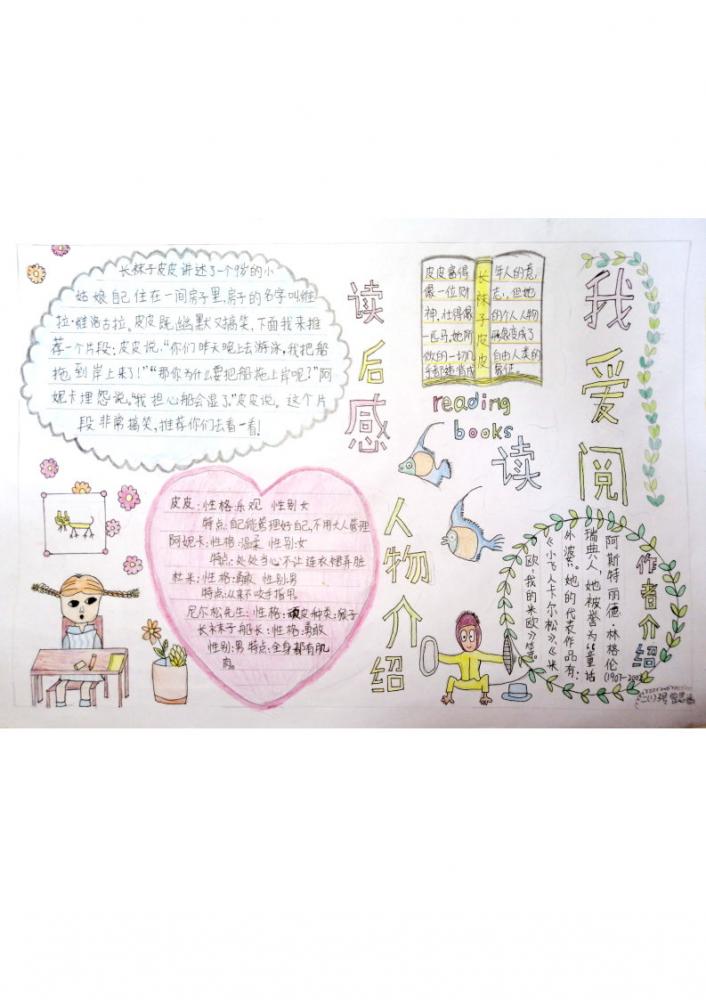 我爱阅
读
读后感
长袜子皮皮讲述了一个9岁的小
姑娘自己住在一间房子里,房子的名字叫维
拉·维洛古拉,皮皮既幽默又搞笑,下面我来推
荐一个片段:皮皮说,“你们昨天晚上去游泳,我把船
拖到岸上来了!”“那你为什么要把船拖上岸呢?”阿
妮卡埋怨说。“我担心船会湿了”皮皮说。这个片
段非常搞笑,推荐你们去看一看!
长袜子皮皮
皮皮富得
像一位财
神,壮得像
一匹马,她所
做的一切几
乎都违背成
年人的意
志,但她
的个人人物
自由人类的
象征。
reading
books
人物介绍
皮皮:性格:乐观 性别女
特点:自己能管理好自己,不用大人管理
阿妮卡:性格:温柔 性别:女
特点:处处当心不让连衣裙弄脏
杜米:性格:勇敢 性别:男
特点:从来不咬手指甲。
尼尔松先生:性格:顽皮种类:猴子
长袜子船长:性格:勇敢
性别:男 特点:全身都有肌
肉。
作者介绍
阿斯特丽德·林格伦
(1907-2002)
瑞典人,她被誉为“童话
外婆”。她的代表作品有:
《小飞人卡尔松》、《米
欧,我的米欧》等。